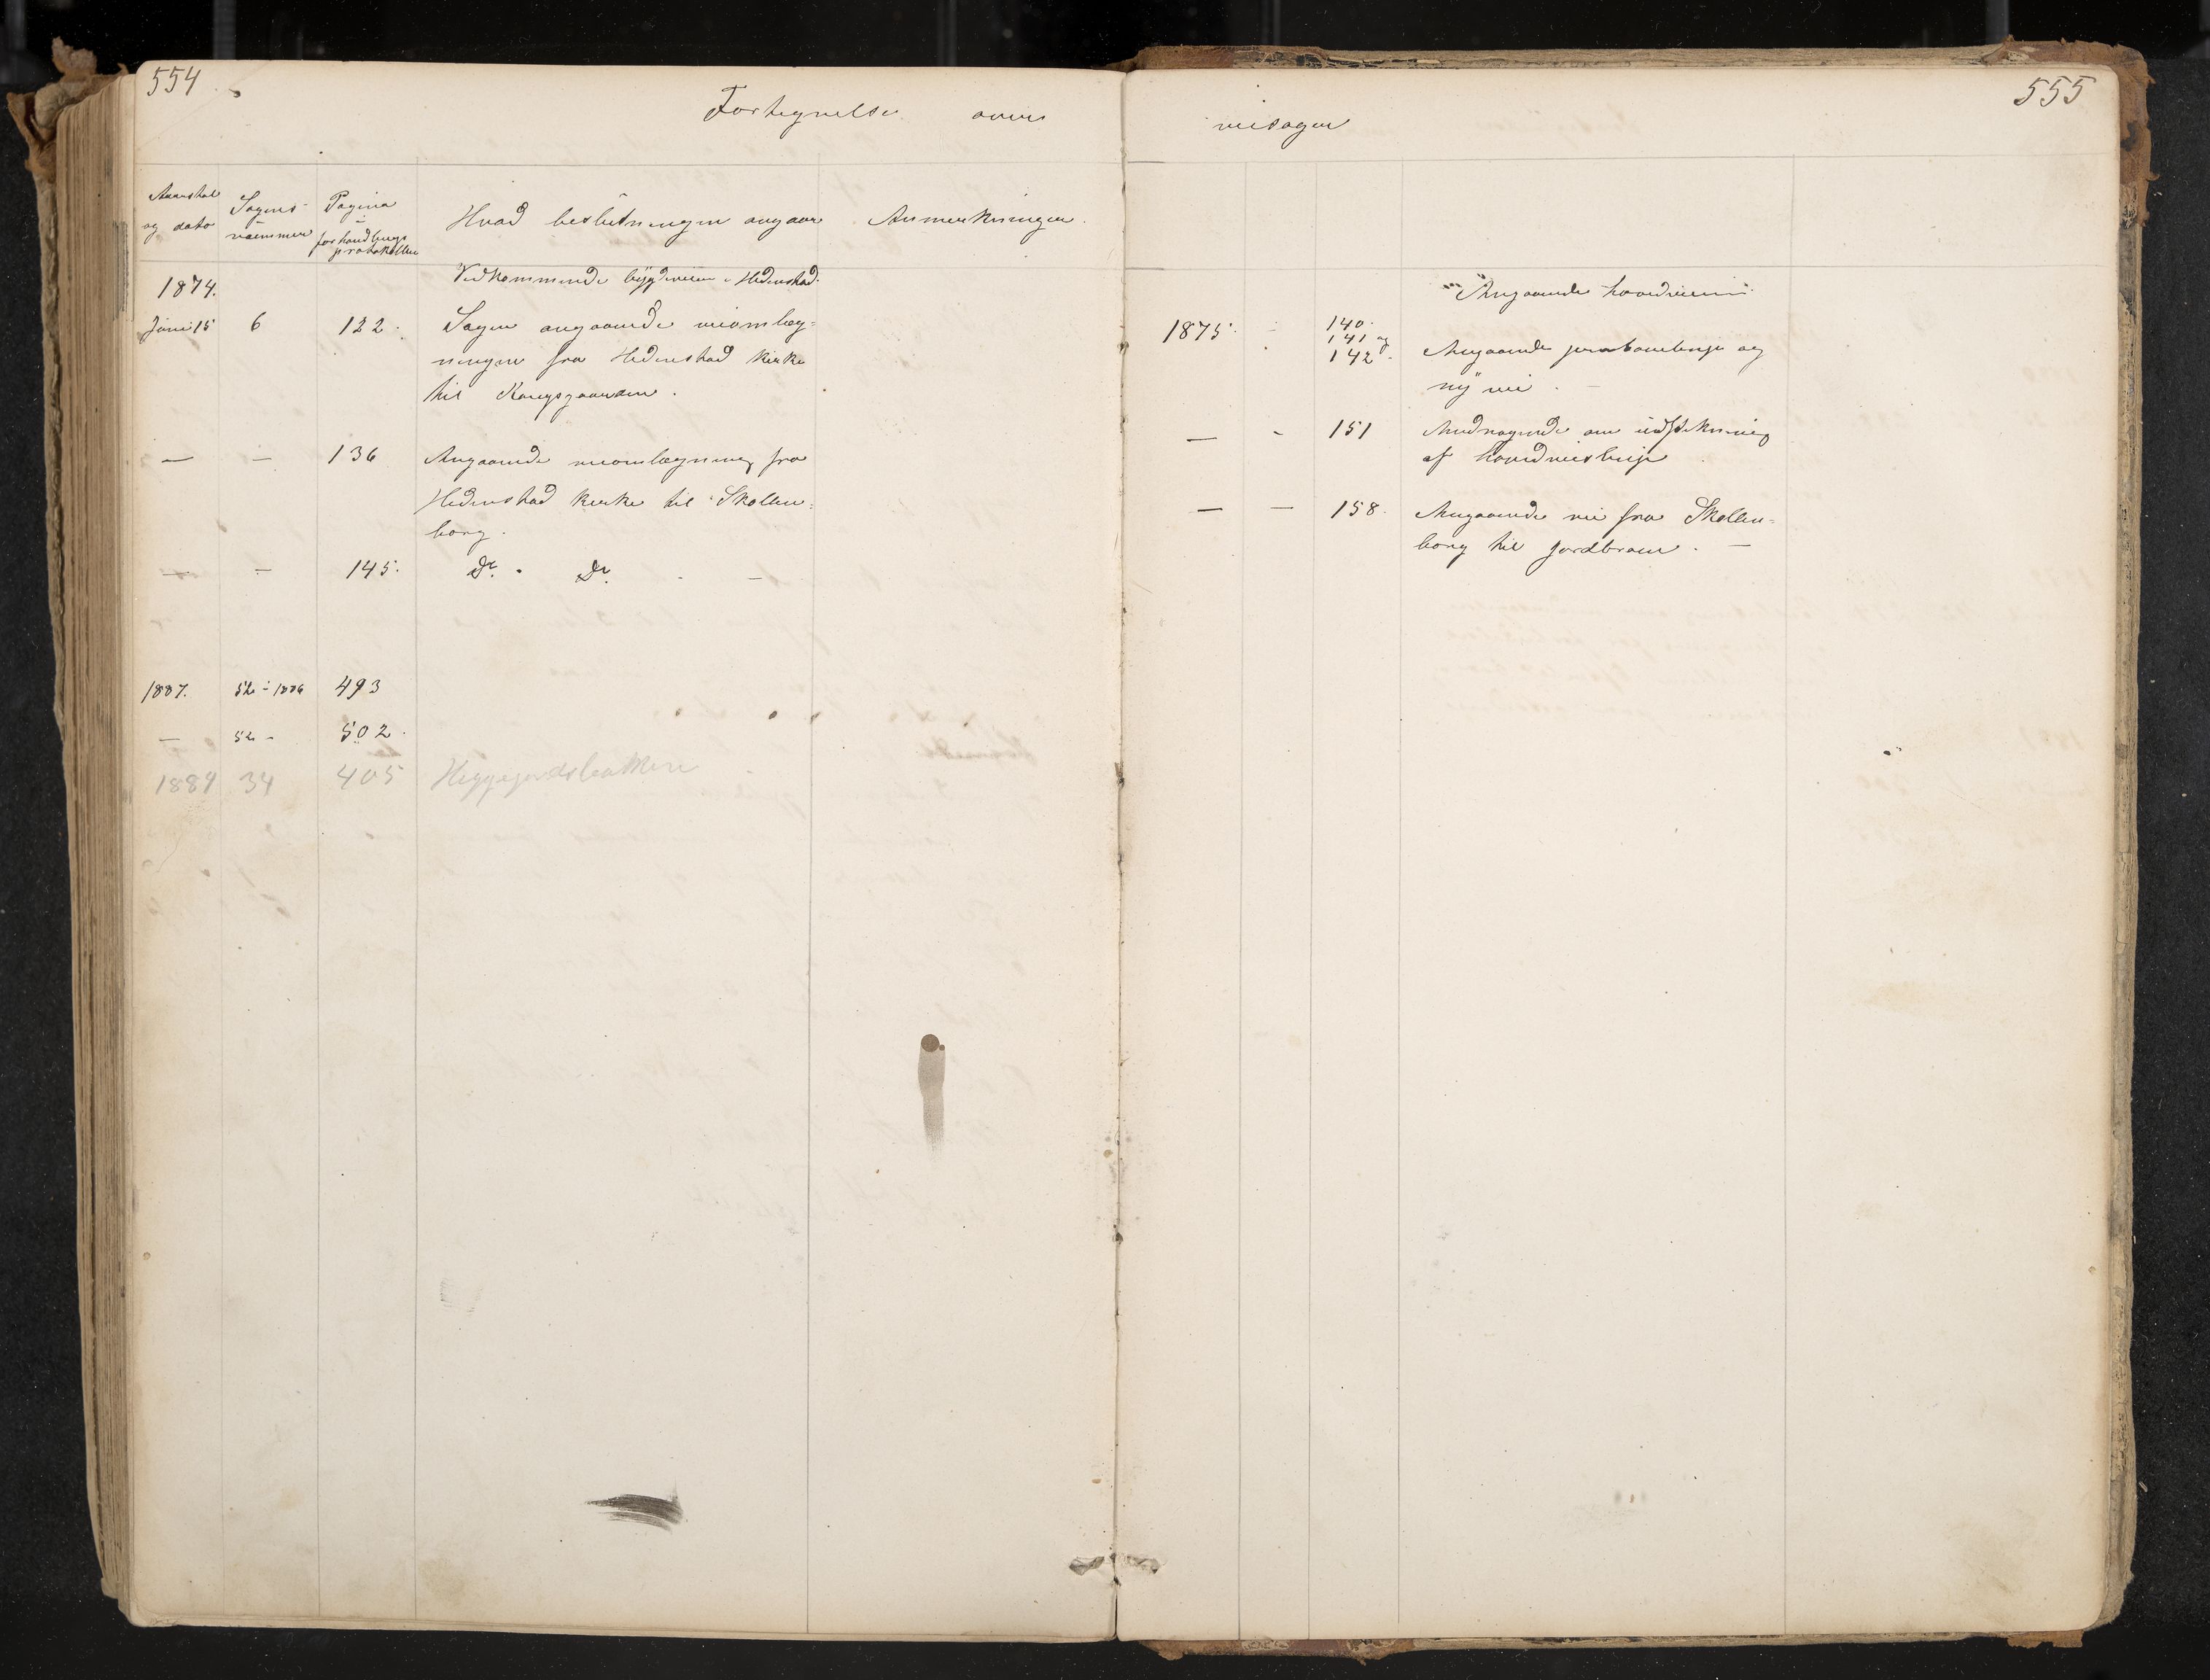 554
Fortegnelse over
Aarstal og dato
Sagens nummer
Pagina i forhandlings protokollen
Hvad beslutningen angaar
Anmerkninger.
1874.
Vedkommende bygdeveien i Hedenstad.
Juni 15 6 122. Sagen angaaende veiomlæg-
ningen fra Hedenstad kirke
til Kongsgaarden.
— — 136 Angaaende veiomlægning fra
Hedenstad kirke til Skollen-
borg.
— — 145. Do. Do. —
1887. 52 - 1886 493
— 52 - 502.
1884 34 405 Heggejordsbakken
555
veisager
Angaaende hovedveien
1875. 140.
141 og
142. Angaaende og
ny vei. —
— - 151 Andragende om udstikning
af hovedveislinje
— — 158. Angaaende vei fra Skollen-
borg til Jordbroen. —